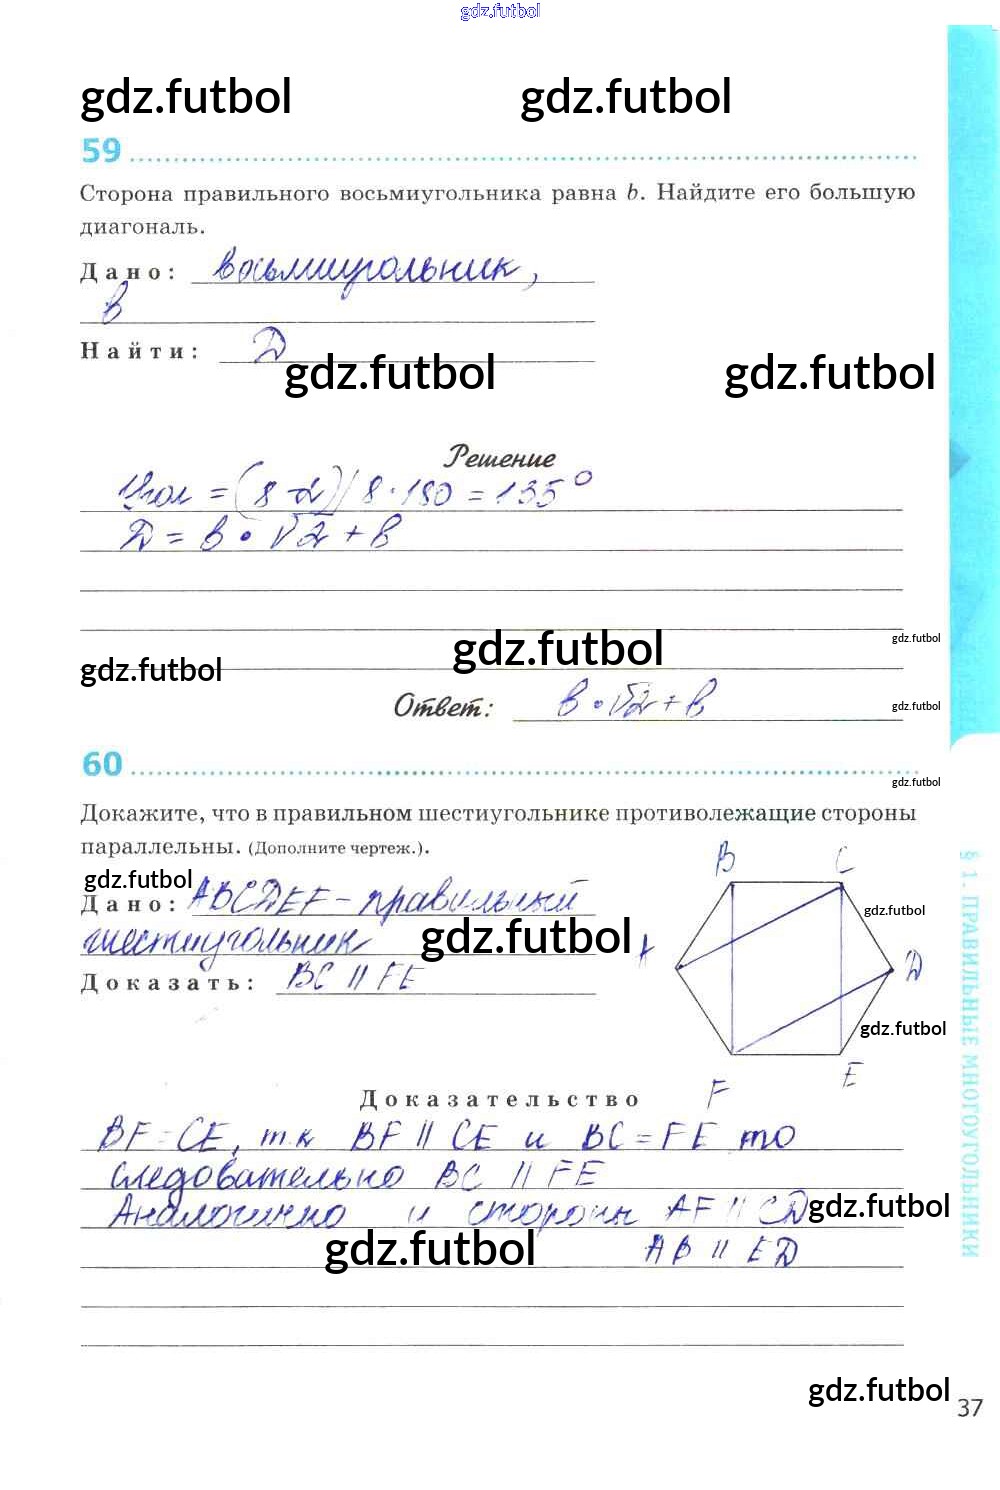 gdz.futbol
gdz.futbol gdz.futbol
59
Сторона правильного восьмиугольника равна b. Найдите его большую
диагональ.
Дано: восьмиугольник,
в
Найти: D
gdz.futbol gdz.futbol
Решение
Угол = (8-2)/8·180=135°
D = в · √2 + в
gdz.futbol
gdz.futbol
gdz.futbol
Ответ: в·√2+в
gdz.futbol
60
gdz.futbol
Докажите, что в правильном шестиугольнике противолежащие стороны
параллельны. (Дополните чертеж.).
B C
gdz.futbol
Дано: ABCDEF - правильный
gdz.futbol
шестиугольник
gdz.futbol
A
D
Доказать: BC || FE
gdz.futbol
F E
Доказательство
BF = CE, т.к BF || CE и BC = FE то
следовательно BC || FE
Аналогично и стороны AF || CD
gdz.futbol
gdz.futbol
AB || ED
gdz.futbol
§ 1. ПРАВИЛЬНЫЕ МНОГОУГОЛЬНИКИ
37